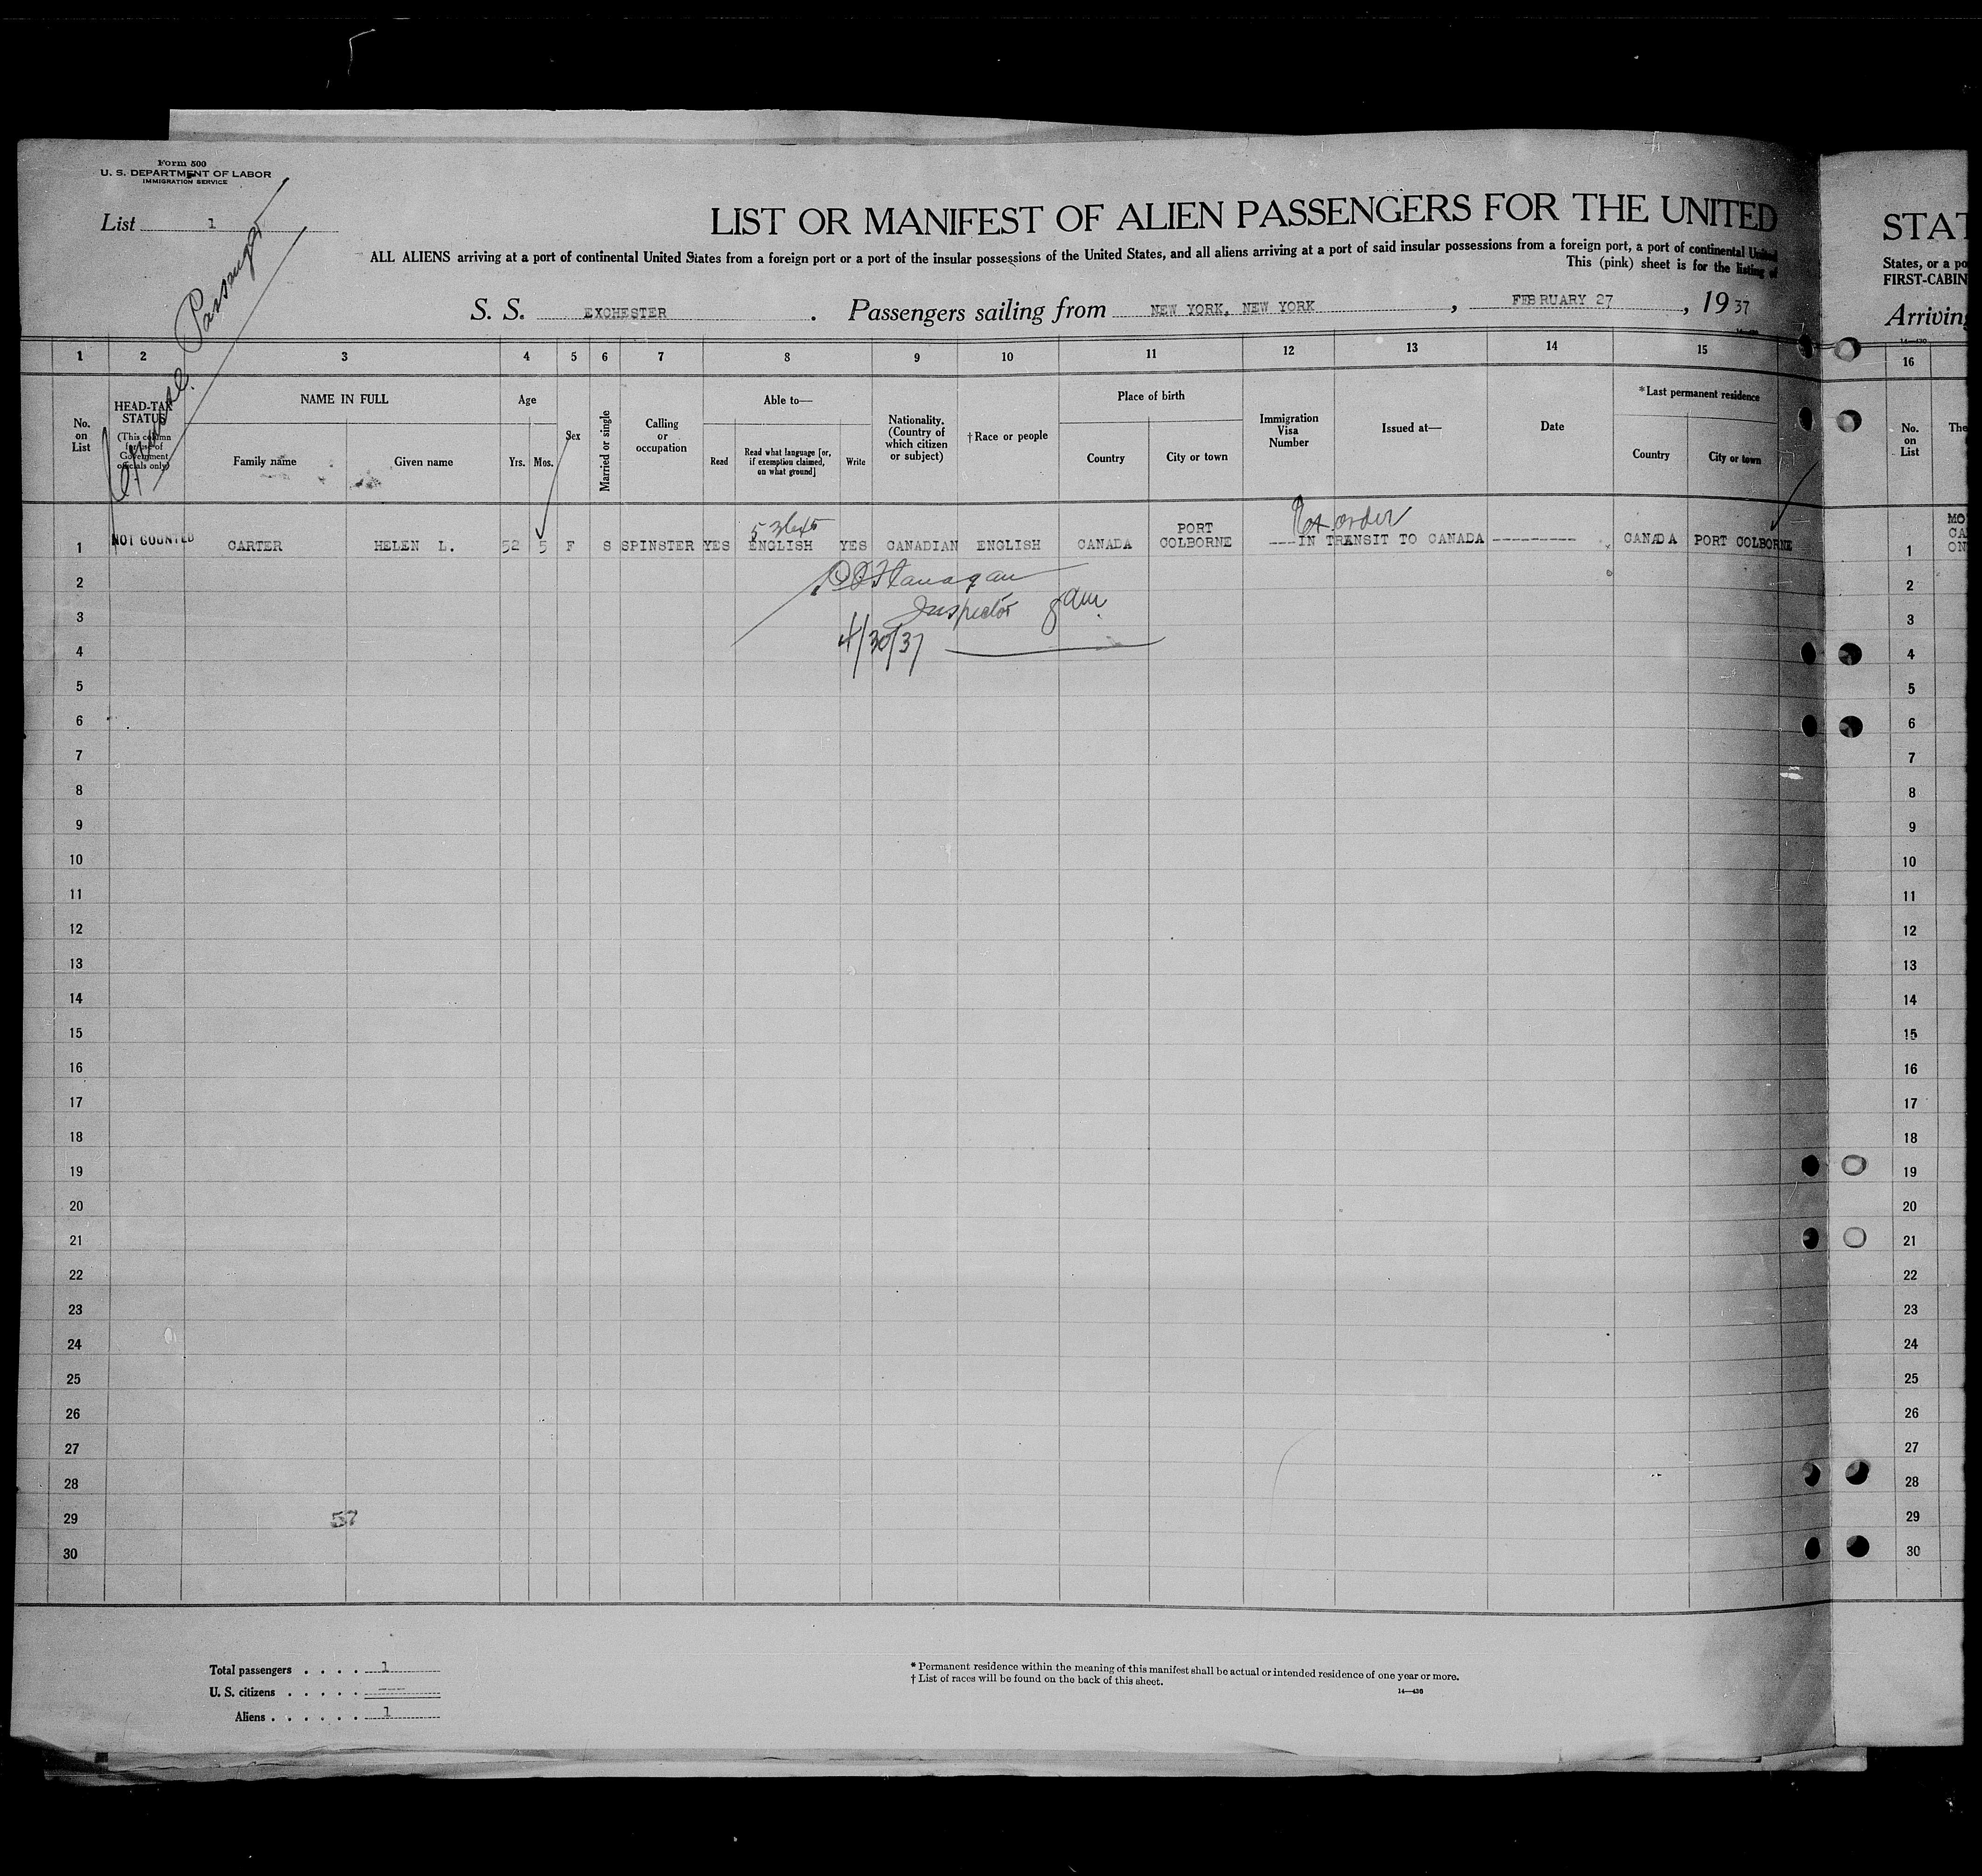 Form 500
U. S. DEPARTMENT OF LABOR
IMMIGRATION SERVICE
List 1
Passenger
LIST OR MANIFEST OF ALIEN PASSENGERS FOR THE UNITED
ALL ALIENS arriving at a port of continental United States from a foreign port or a port of the insular possessions of the United States, and all aliens arriving at a port of said insular possessions from a foreign port, a port of continental United
This (pink) sheet is for the listing of
S. S. EXCHESTER. Passengers sailing from NEW YORK, NEW YORK, FEBRUARY 27, 1937
14—430
1 2 3 4 5 6 7 8 9 10 11 12 13 14 15
No. on List
HEAD-TAX STATUS
(This column for use of Government officials only)
NAME IN FULL
Family name
Given name
Age
Yrs. Mos.
Sex
Married or single
Calling or occupation
Able to—
Read
Read what language [or, if exemption claimed, on what ground]
Write
Nationality. (Country of which citizen or subject)
†Race or people
Place of birth
Country
City or town
Immigration Visa Number
Issued at—
Date
*Last permanent residence
Country
City or town
1 NOT COUNTED CARTER HELEN L. 52 5 F S SPINSTER YES ENGLISH YES CANADIAN ENGLISH CANADA PORT COLBORNE ---IN TRANSIT TO CANADA ---------- CANADA PORT COLBORNE
Flanagan
Inspector
4/30/37
2
3
4
5
6
7
8
9
10
11
12
13
14
15
16
17
18
19
20
21
22
23
24
25
26
27
28
29
57
30
Total passengers . . . . 1
U. S. citizens . . . . . ---
Aliens . . . . . . 1
* Permanent residence within the meaning of this manifest shall be actual or intended residence of one year or more.
† List of races will be found on the back of this sheet.
14—436
STAT
States, or a po
FIRST-CABIN
Arriving
14—430
16
No. on List
The
1
MO
CA
ON
2
3
4
5
6
7
8
9
10
11
12
13
14
15
16
17
18
19
20
21
22
23
24
25
26
27
28
29
30